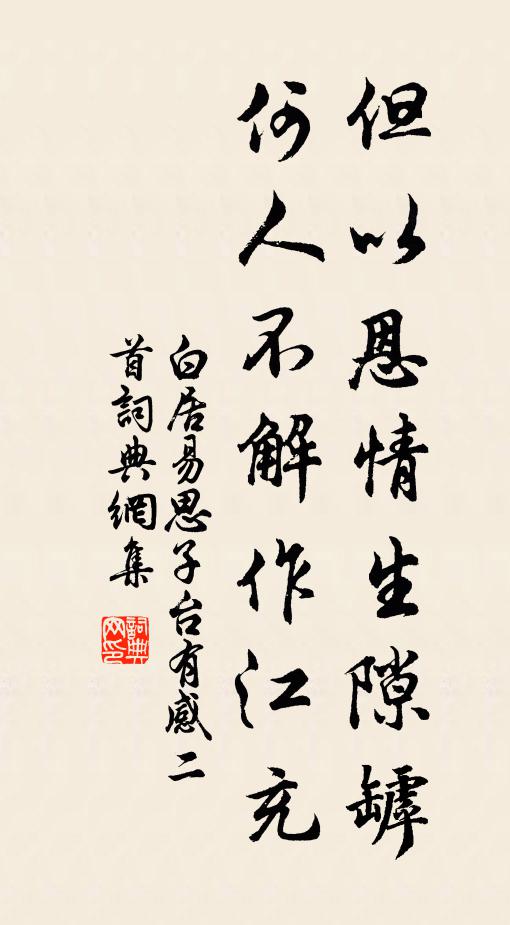 但以恩情生隙罅
何人不解作江充
白居易思子台有感二
首詞典網集
詞典网印